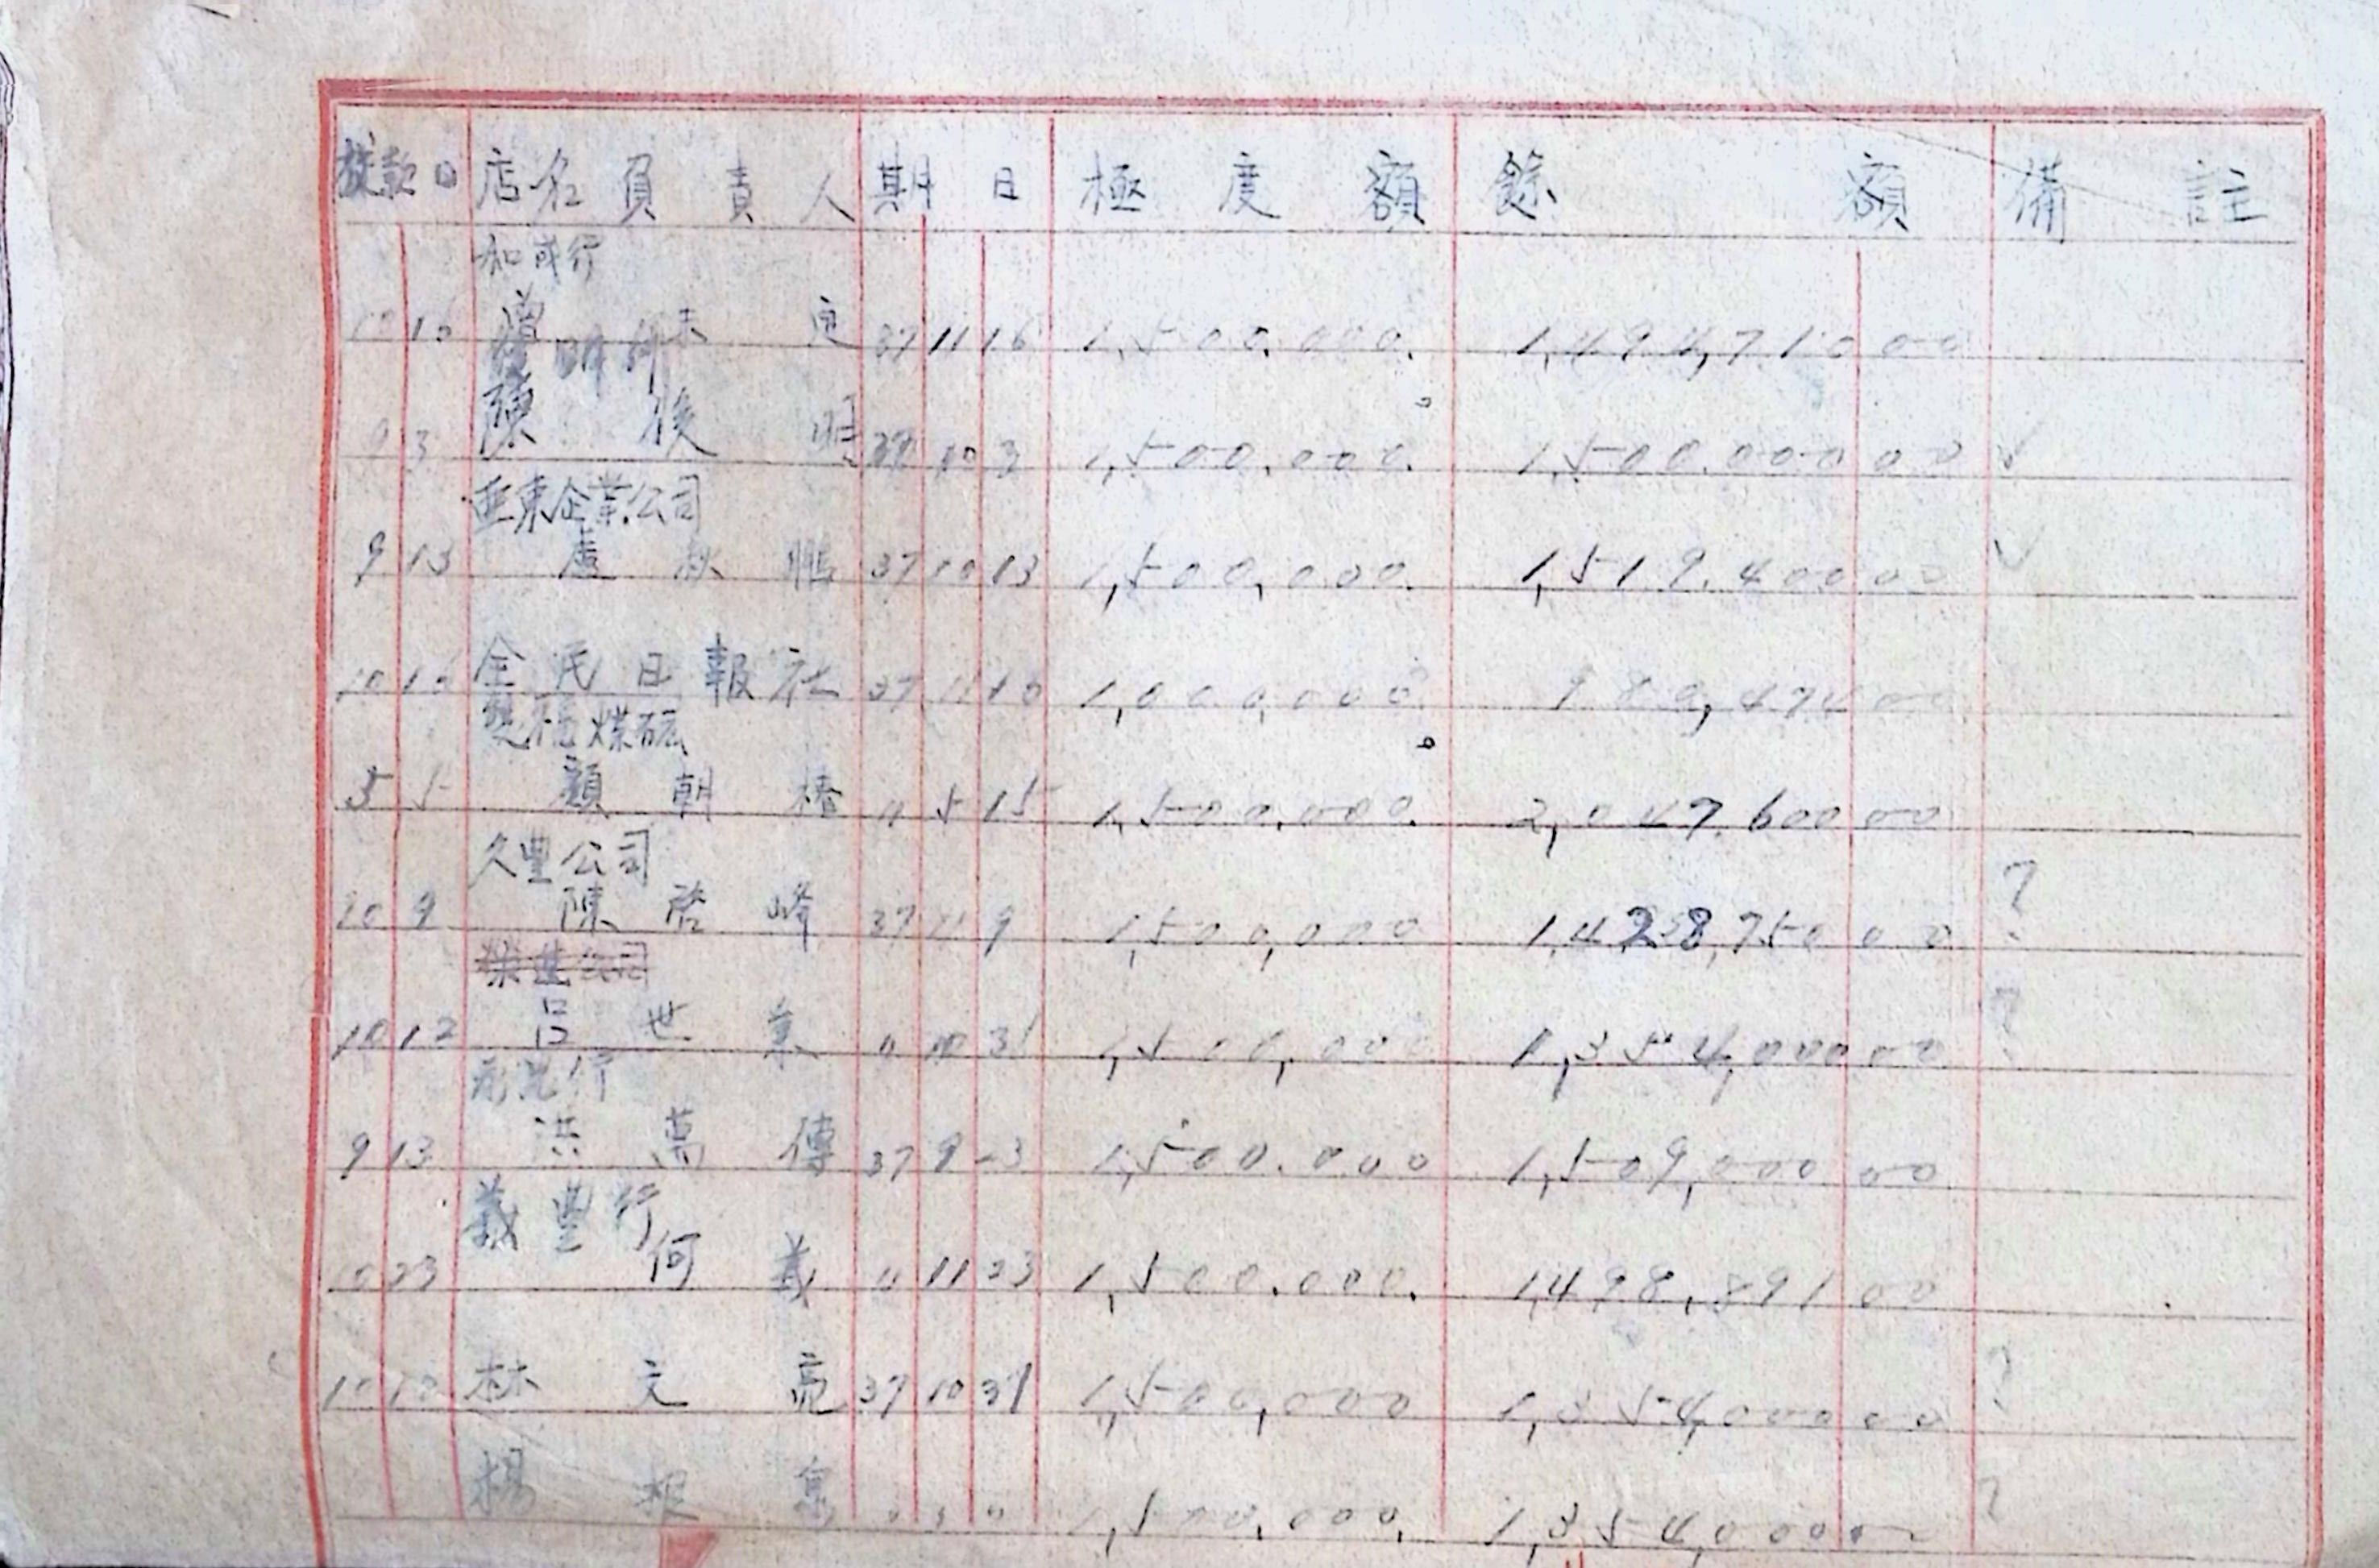 放款日 店名負責人 期日 極度額 餘額 備註
和成行
10 16 37 11 16 1,500,000. 1,494,710 00
陳後明
9 3 37 10 3 1,500,000. 1,500,000 00 ✓
亜東企業公司
9 13 盧秋鵬 37 10 13 1,500,000. 1,519,400 00 ✓
10 16 全民日報社 37 11 16 1,000,000 989,474 00
煤砿
5 5 顏朝椿 〃 5 15 1,500,000. 2,047,600 00
久豐公司
10 9 陳啓峰 37 11 9 1,500,000 1,428,750 00 ?
10 12 呂世 〃 10 31 1,500,000 1,354,000 00 ?
9 13 洪萬傳 37 9 23 1,500,000 1,509,000 00
義豐行
10 23 何義 〃 11 23 1,500,000. 1,498,891 00
10 12 林文亮 37 10 31 1,500,000 1,354,000 00 ?
楊根 〃 〃 〃 1,500,000. 1,354,000 ?